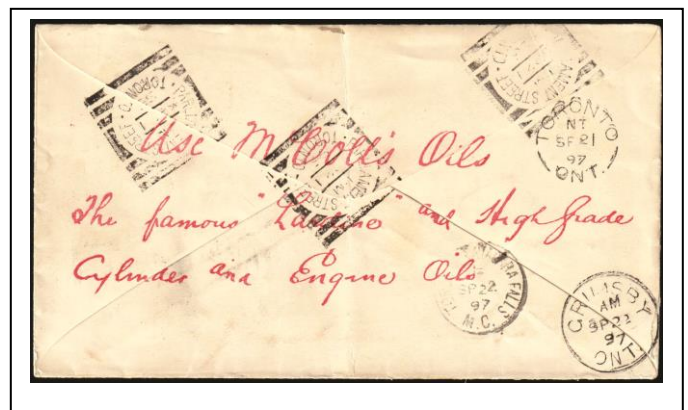 Use McColl's Oils
The famous "Lardine" and High Grade
Cylinder and Engine Oils
STREET
TORON
STREET
TORONTO
NT
SP 21
97
ONT.
RA FALLS
SP 22
97
M.C.
GRIMSBY
AM
SP 22
97
ONT.